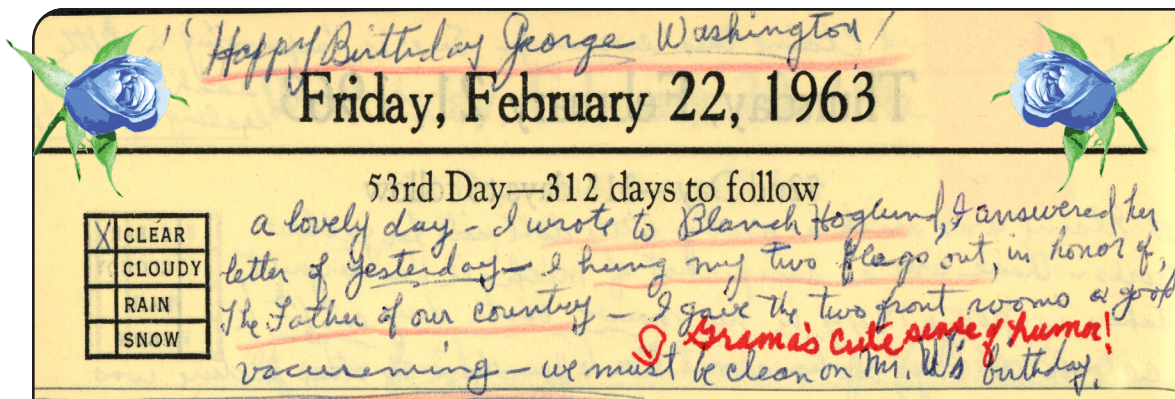 "Happy Birthday George Washington!
Friday, February 22, 1963
53rd Day—312 days to follow
X CLEAR
CLOUDY
RAIN
SNOW
a lovely day - I wrote to Blanch Hoglund, I answered her
letter of yesterday - I hung my two flags out, in honor of,
The Father of our country - I gave the two front rooms a good
Grama's cute sense of humor!
vacureming - we must be clean on Mr. W's birthday.